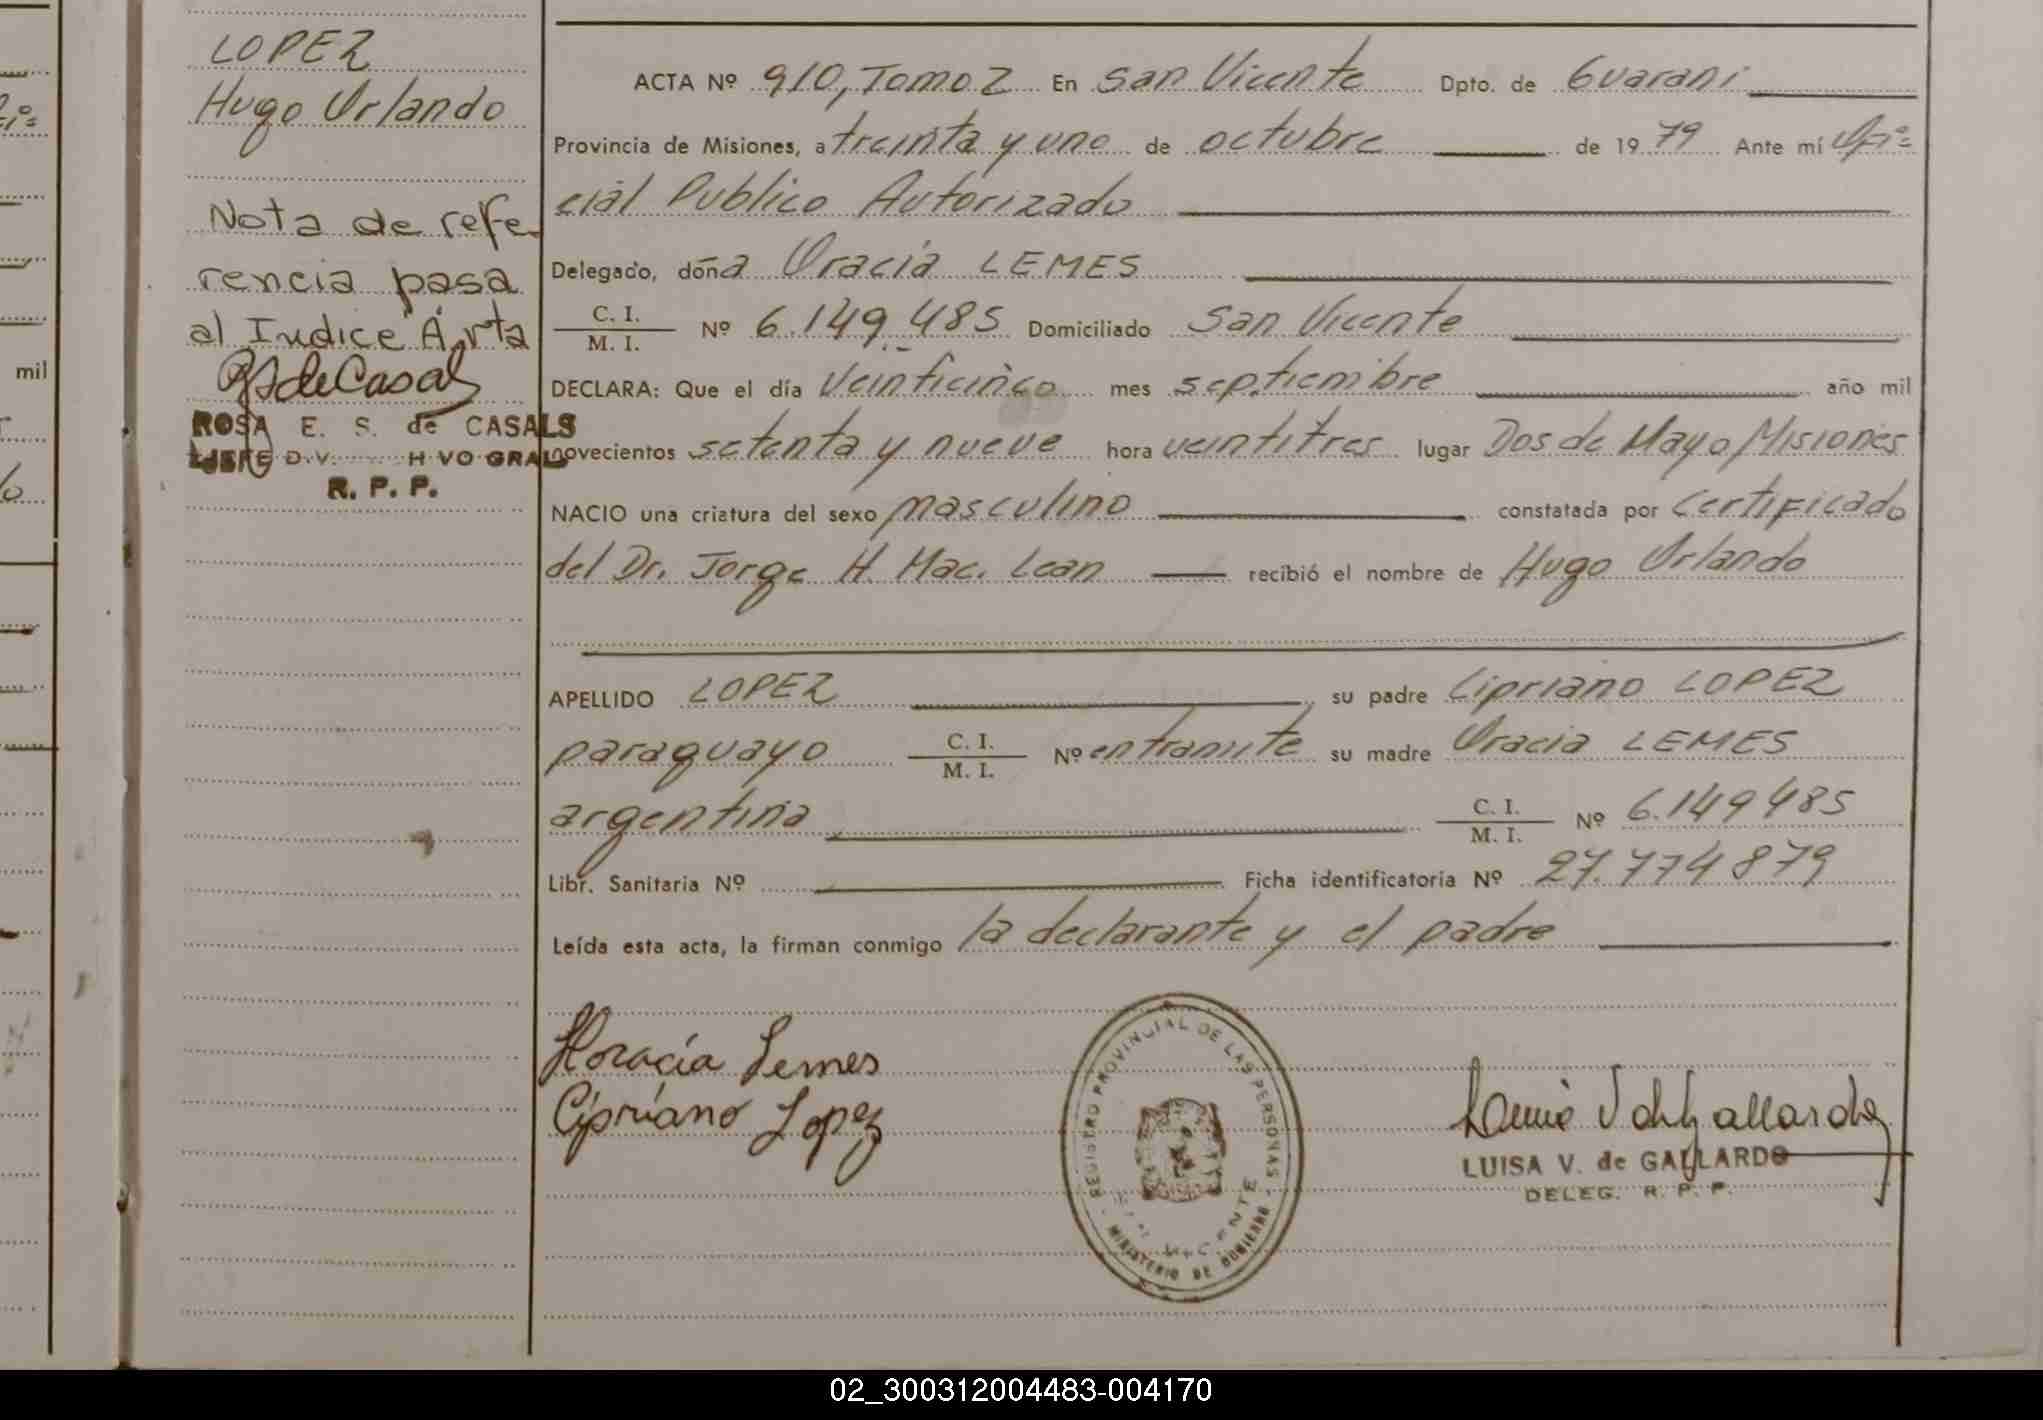 LOPEZ
Hugo Orlando
Nota de refe-
rencia pasa
al Indice A vta
ROSA E. S. de CASALS
R. P. P.
mil
ACTA Nº 910, Tomo 2 En San Vicente Dpto. de Guarani
Provincia de Misiones, a treinta y uno de octubre de 1979 Ante mí Ofi=
cial Publico Autorizado
Delegado, doña Oracia LEMES
C. I.
M. I. Nº 6.149.485 Domiciliado San Vicente
DECLARA: Que el día veinticinco mes septiembre año mil
novecientos setenta y nueve hora veintitres lugar Dos de Mayo, Misiones
NACIO una criatura del sexo masculino constatada por certificado
del Dr. Jorge H. Mac. Lean recibió el nombre de Hugo Orlando
APELLIDO LOPEZ su padre Cipriano LOPEZ
paraguayo C. I.
M. I. Nº entramite su madre Oracia LEMES
argentina C. I.
M. I. Nº 6.149485
Libr. Sanitaria Nº Ficha identificatoria Nº 27.774879
Leída esta acta, la firman conmigo la declarante y el padre
Horacia Lemes
Cipriano Lopez
REGISTRO PROVINCIAL DE LAS PERSONAS
MINISTERIO DE GOBIERNO
VICENTE
LUISA V. de GALLARDO
DELEG. R. P. P.
02_300312004483-004170